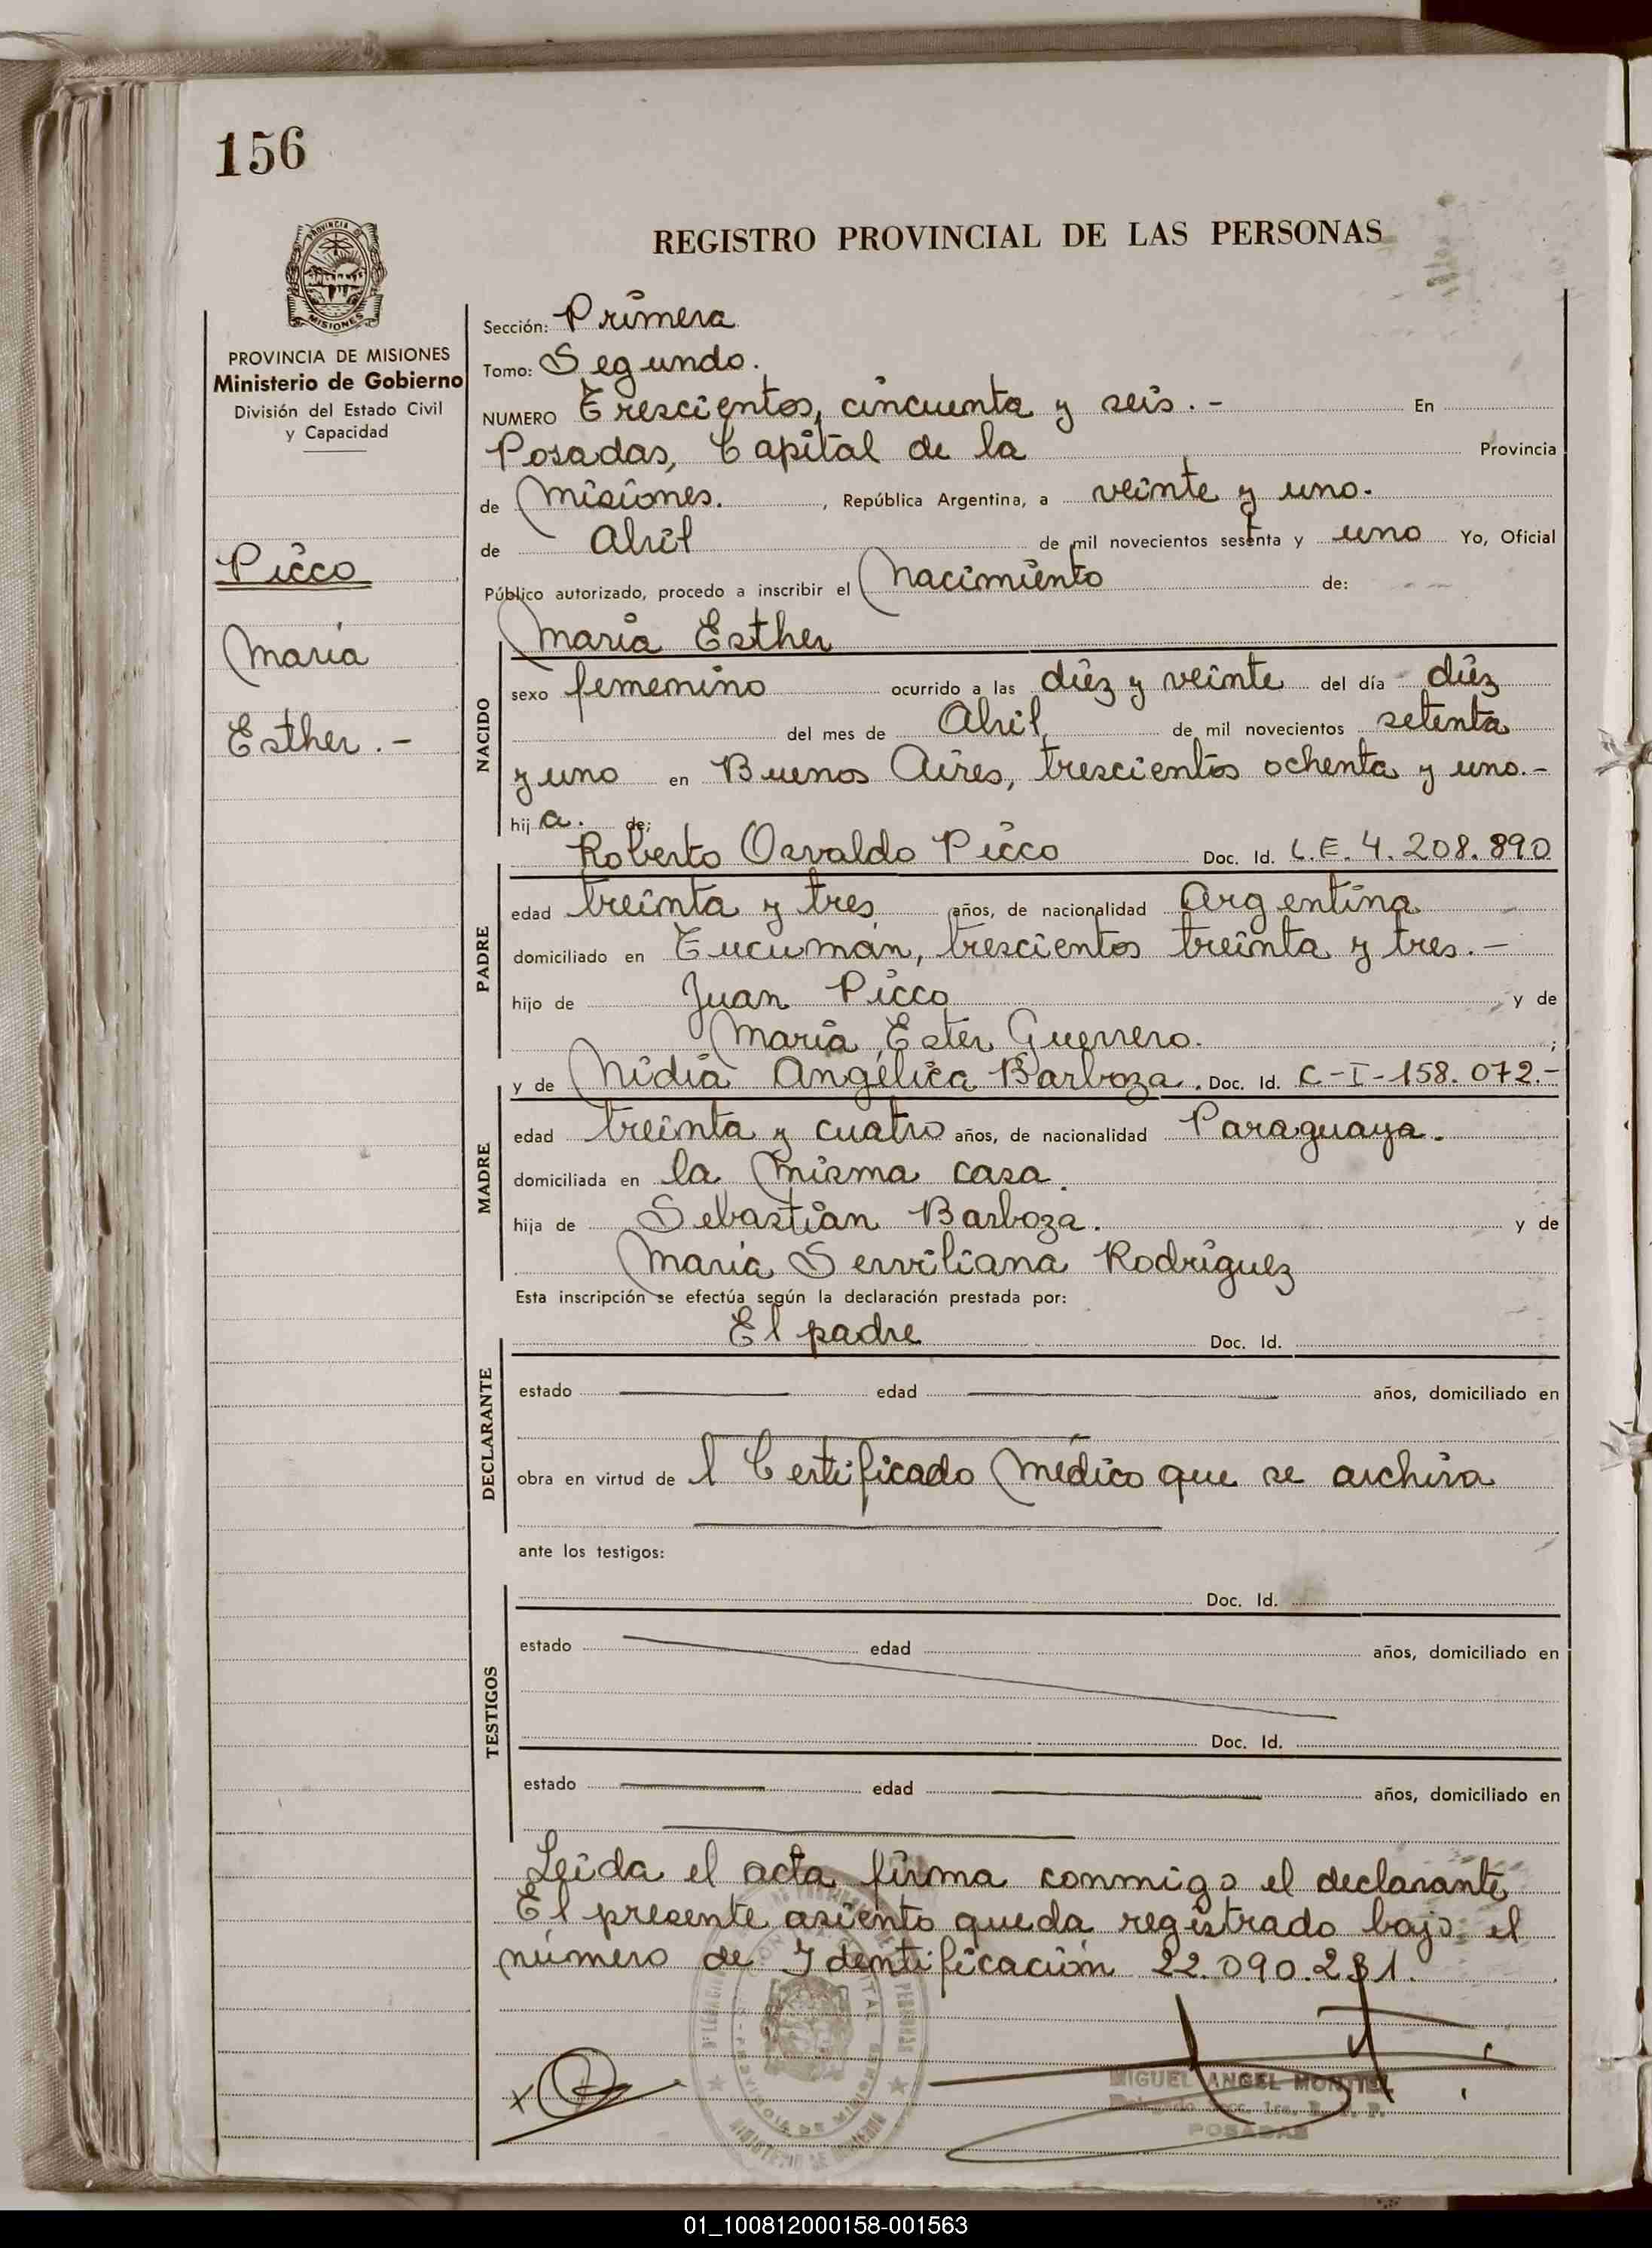 156
PROVINCIA DE
MISIONES
REGISTRO PROVINCIAL DE LAS PERSONAS
PROVINCIA DE MISIONES
Ministerio de Gobierno
División del Estado Civil
y Capacidad
Picco
María
Esther.-
Sección: Primera
Tomo: Segundo.
NUMERO Trescientos, cincuenta y seis.- En
Posadas, Capital de la Provincia
de Misiones. , República Argentina, a veinte y uno.
de Abril de mil novecientos setenta y uno Yo, Oficial
Público autorizado, procedo a inscribir el Nacimiento de:
María Esther
NACIDO
sexo femenino ocurrido a las diéz y veinte del día diéz
del mes de Abril de mil novecientos setenta
y uno en Buenos Aires, trescientos ochenta y uno.-
hij a. de;
Roberto Osvaldo Picco Doc. Id. L.E. 4.208.890
PADRE
edad treinta y tres años, de nacionalidad Argentina
domiciliado en Tucumán, trescientos treinta y tres.-
hijo de Juan Picco y de
María Ester Guerrero. ;
y de Nidia Angélica Barboza. Doc. Id. C-I-158.072.-
MADRE
edad treinta y cuatro años, de nacionalidad Paraguaya.
domiciliada en la misma casa.
hija de Sebastián Barboza. y de
María Serviliana Rodríguez
Esta inscripción se efectúa según la declaración prestada por:
El padre Doc. Id.
DECLARANTE
estado edad años, domiciliado en
obra en virtud de l Certificado Médico que se archiva
ante los testigos:
TESTIGOS
Doc. Id.
estado edad años, domiciliado en
Doc. Id.
estado edad años, domiciliado en
Leida el acta firma conmigo el declarante
El presente asiento queda registrado bajo el
número de Identificación 22.090.231.
MIGUEL ANGEL MONTIEL
POSADAS
01_100812000158-001563